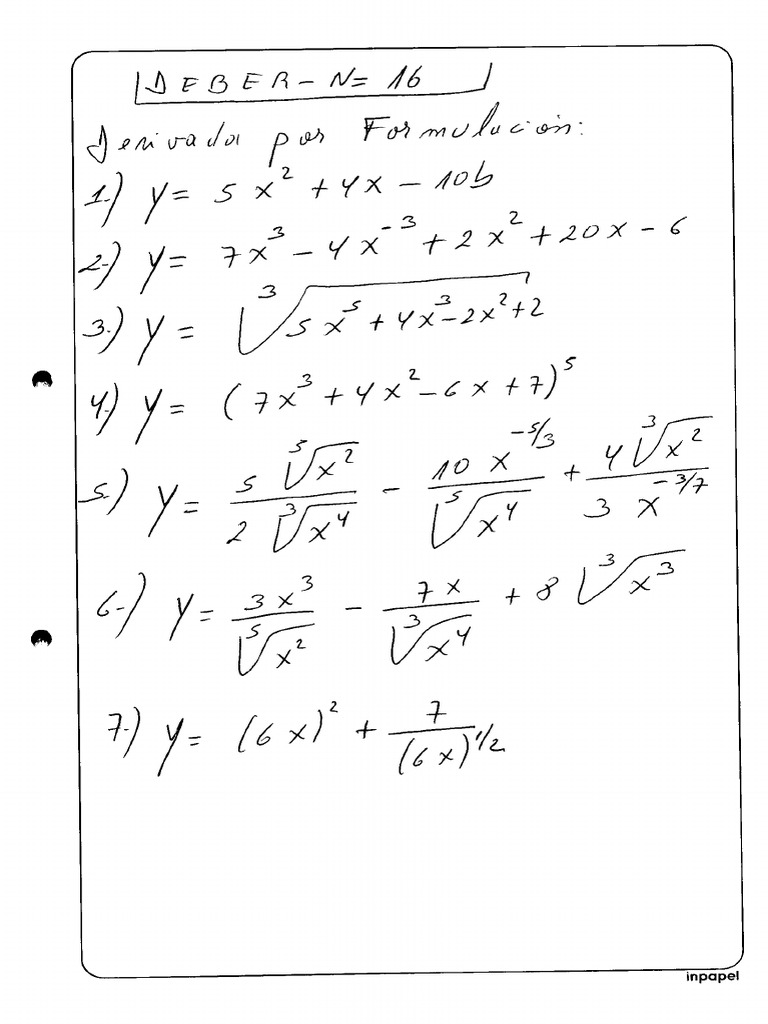 DEBER - N= 16
Derivada por Formulación:
1.) y = 5x² + 4x - 10b
2.) y = 7x³ - 4x⁻³ + 2x² + 20x - 6
3.) y = ∛(5x⁵ + 4x³ - 2x² + 2)
4.) y = (7x³ + 4x² - 6x + 7)⁵
5.) y = 5 ⁵√x² / 2 ∛x⁴ - 10 x^(-5/3) / ⁵√x⁴ + 4 ∛x² / 3 x^(-3/7)
6.) y = 3x³ / ⁵√x² - 7x / ∛x⁴ + 8 ∛x³
7.) y = (6x)² + 7 / (6x)^(1/2)
inpapel